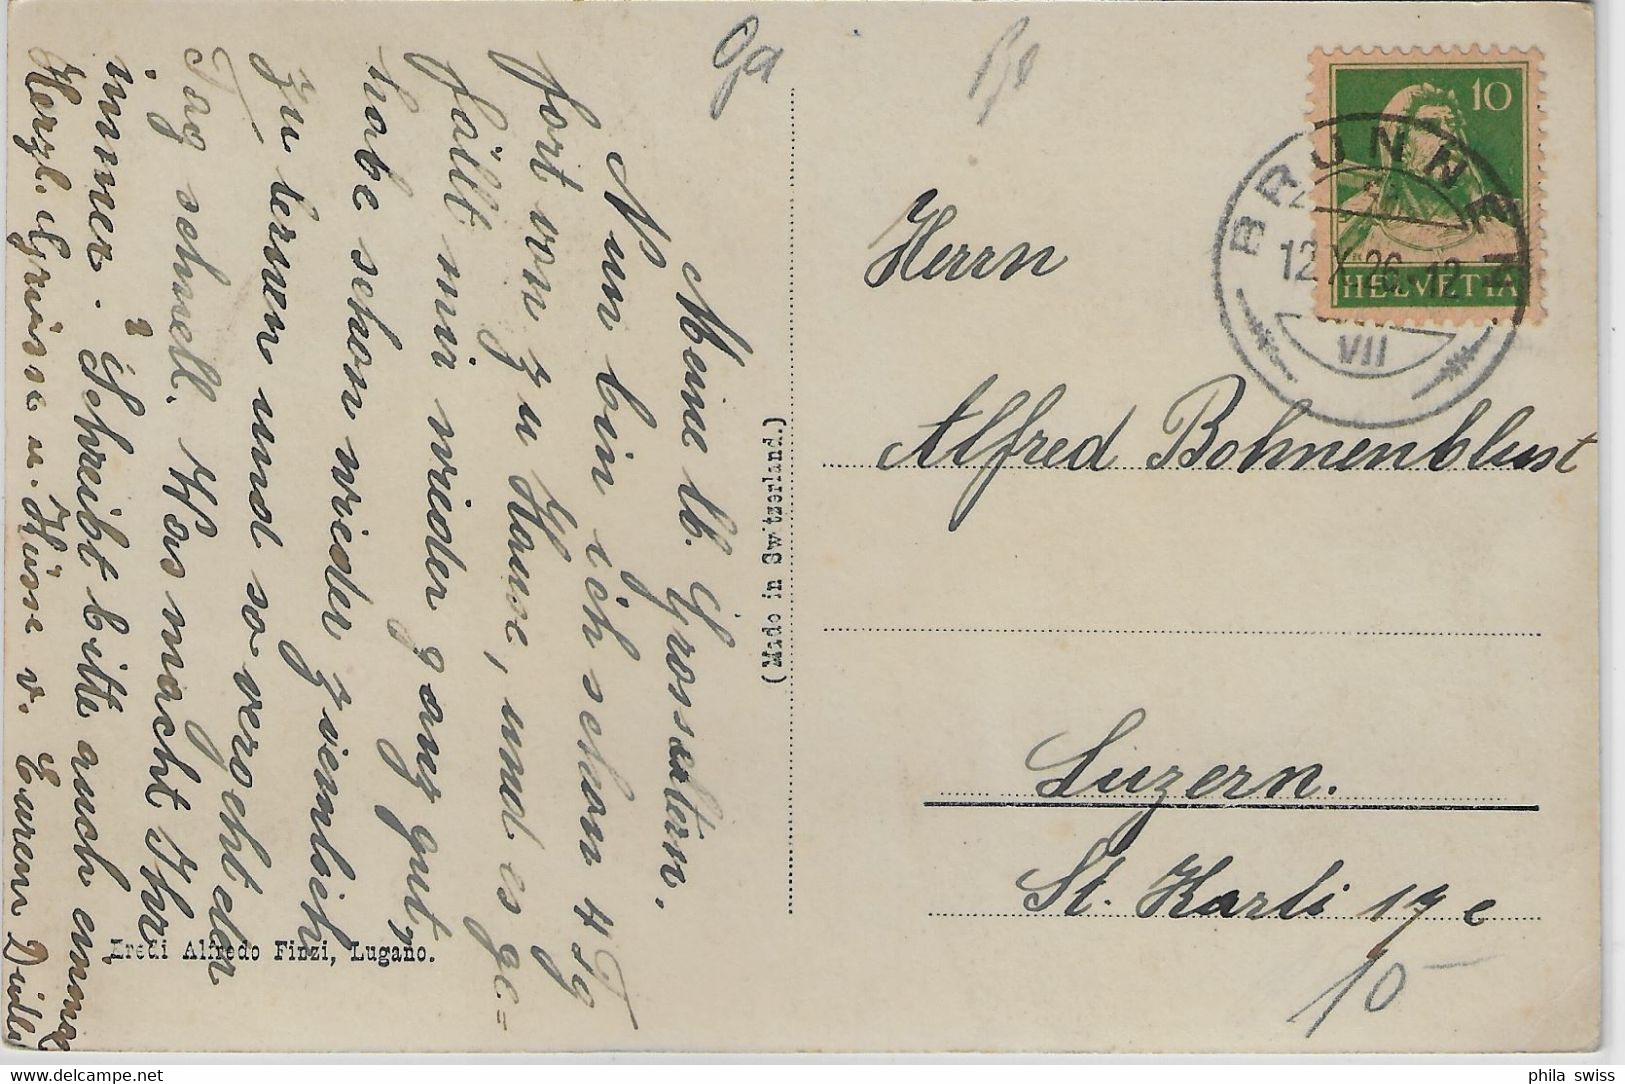 Meine lb. Grosseltern.
Nun bin ich schon 4 Tg
fort von zu Hause, und es ge=
fällt mir wieder ganz gut,
habe schon wieder ziemlich
zu lernen und so vergeht der
Tag schnell. Was macht Ihr
immer. Schreibt bitte auch einmal
Herzl. Grüsse u. Küsse v. Eurem
(Made in Switzerland.)
Eredi Alfredo Finzi, Lugano.
10
HELVETIA
BRUNNEN
12.X.26.-12
VII
Herrn
Alfred Bohnenblust
Luzern.
St. Karli 17 c
10
phila swiss